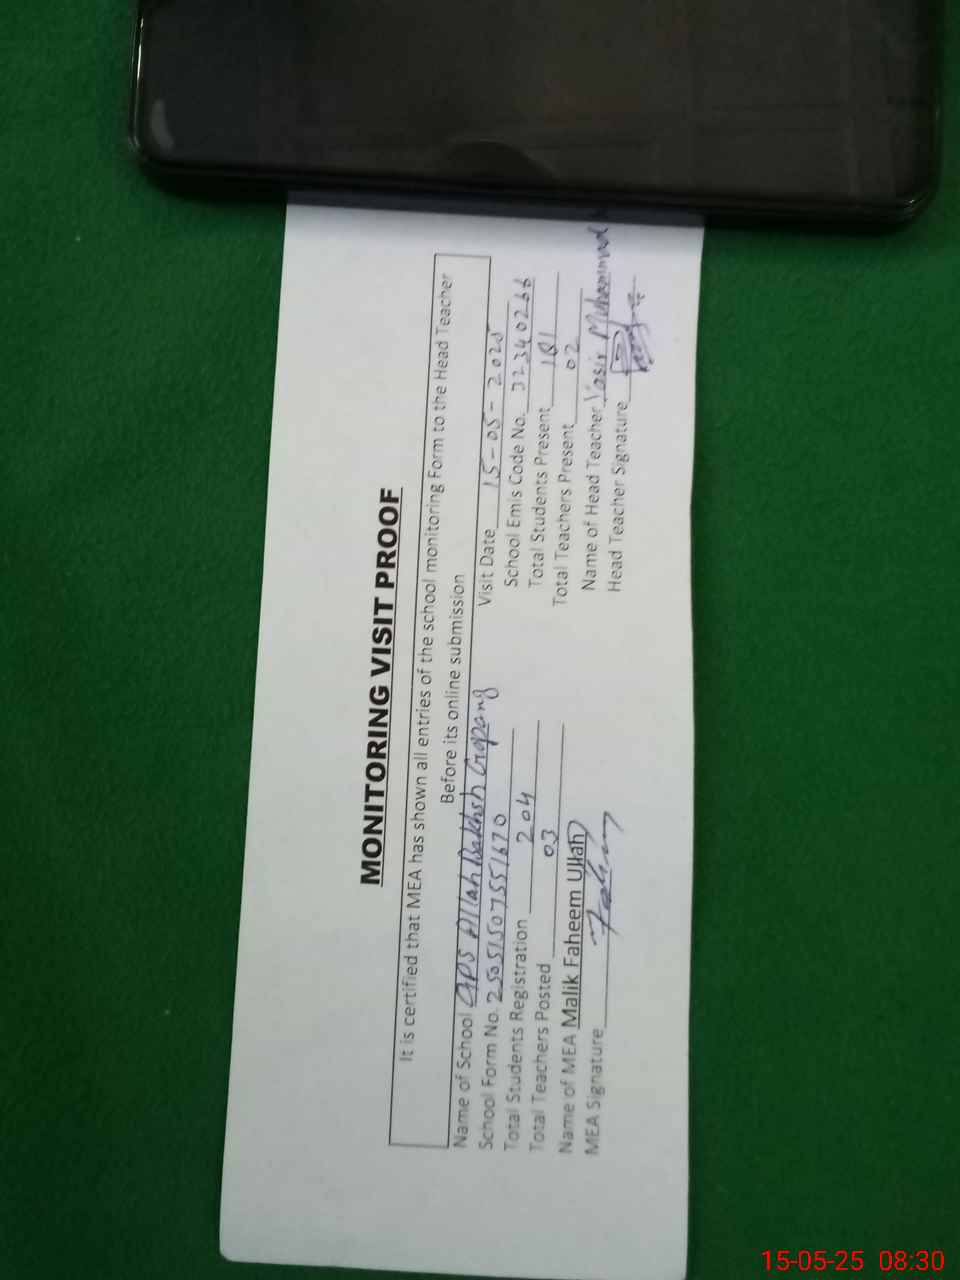 MONITORING VISIT PROOF
It is certified that MEA has shown all entries of the school monitoring Form to the Head Teacher
Before its online submission
Name of School GPS Allah Bakhsh Gopang Visit Date 15-05-2025
School Form No. 250515075551670 School Emis Code No. 32340266
Total Students Registration 204 Total Students Present 181
Total Teachers Posted 03 Total Teachers Present 02
Name of MEA Malik Faheem Ullah Name of Head Teacher Yasir Muhammad
MEA Signature Fahim Head Teacher Signature
15-05-25 08:30